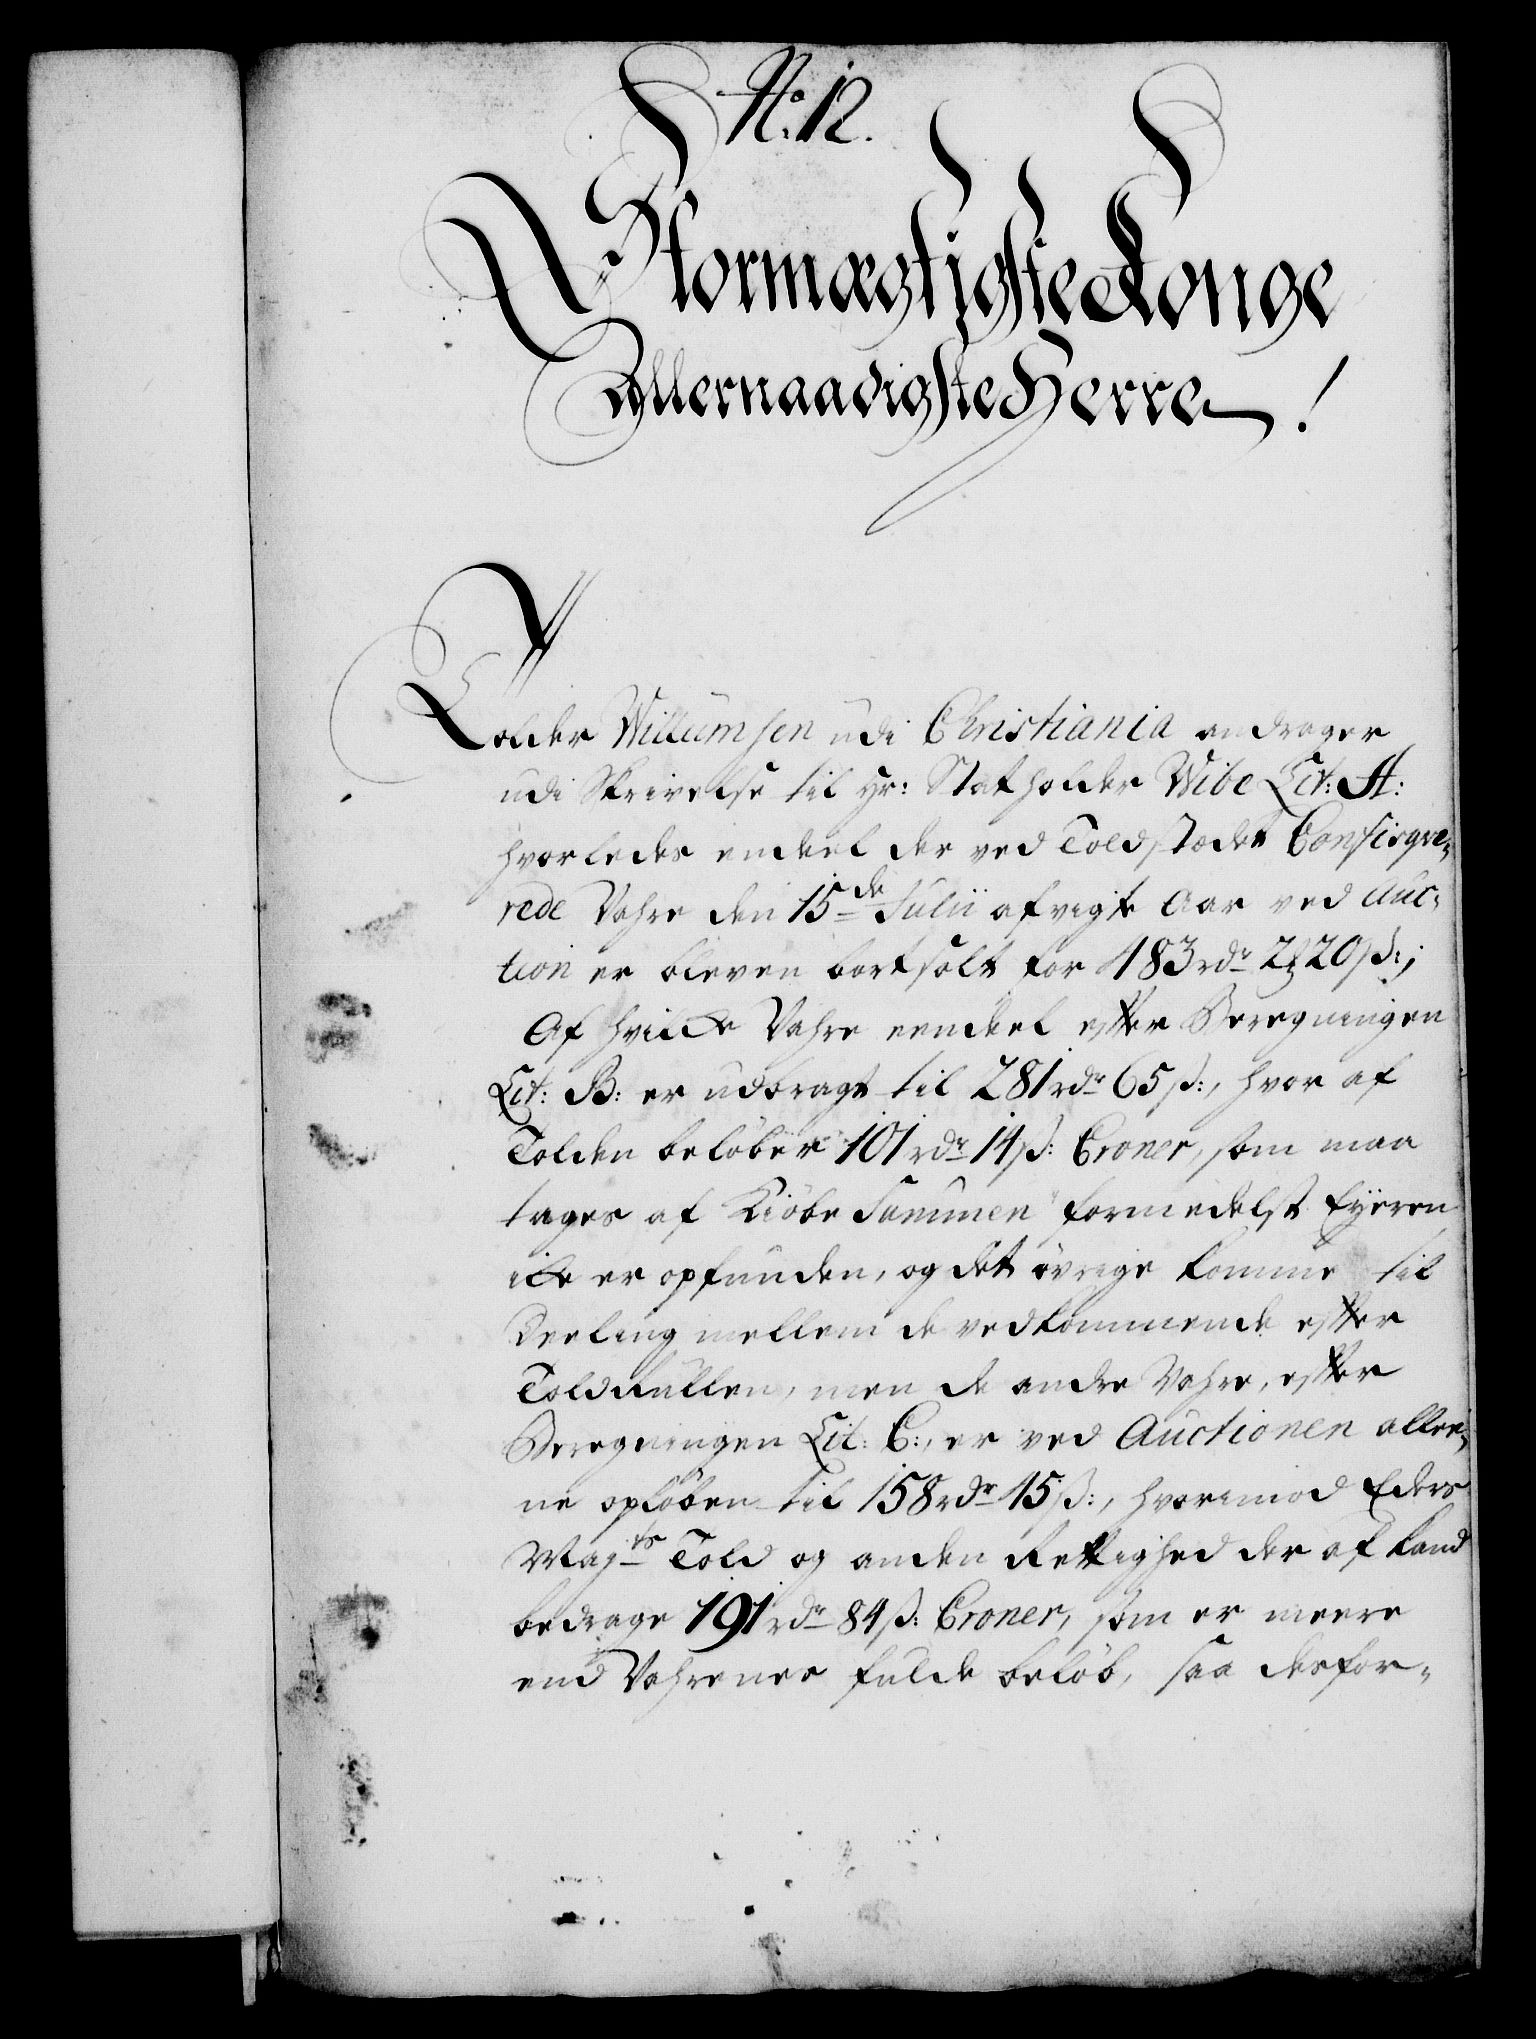 No: 12.
Stormægtigste Konge
Allernaadigste Herre!
Tolder Willumsen udi Christiania andrager
udi Skrivelse til Hr: Statholder Wibe Lit: A:
hvorledes endeel der ved Toldstædet Confisqve-
rede Vahre den 15de Julii afvigte Aar ved Auc-
tion er bleven bortsolt for 483 rdr 2 ƶ 20 ß:;
Af hvilcke Vahre eendeel efter Beregningen
Lit: B: er udbragt til 281 rdr 65 ß:, hvor af
Tolden beløber 101 rdr 14 ß: Croner, som maa
tages af Kiøbe Summen formedelst Eÿeren
icke er opfunden, og det øvrige komme til
Deeling mellem de vedkommende efter
Toldrullen, men de andre Vahre, efter
Beregningen Lit: C:, er ved Auctionen allee-
ne opløben til 158 rdr 15 ß:, hvorimod Eders
Majts Told og anden Rettighed der af kand
bedrage 191 rdr 84 ß: Croner, som er meere
end Vahrenes fulde beløb, saa desfor-